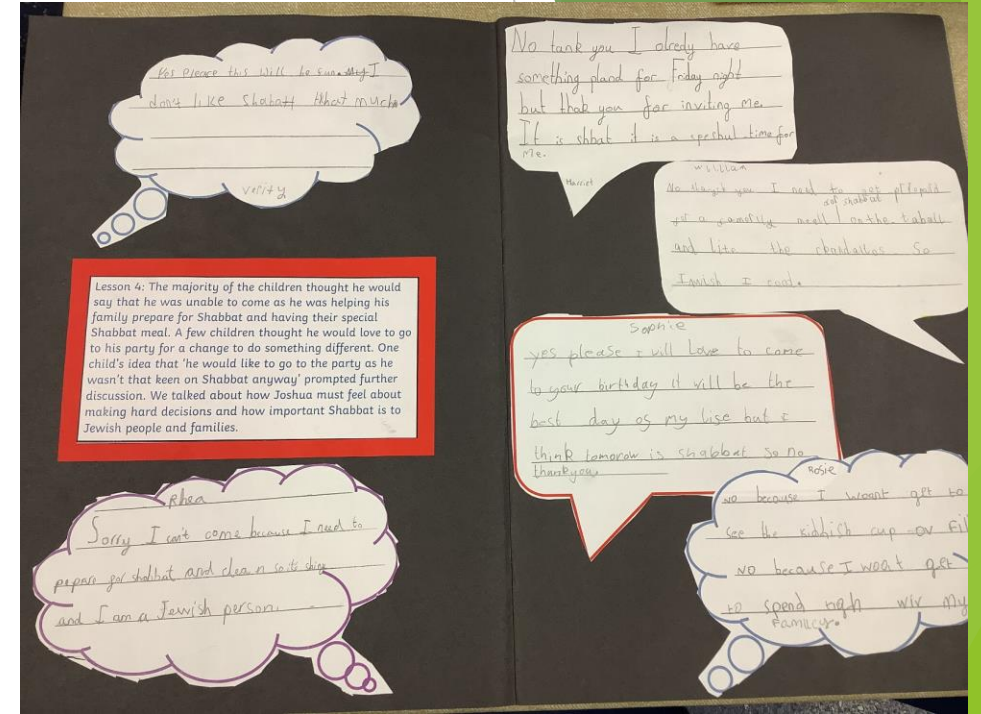 Yes please this will be fun. I
don't like Shabatt that much
verity
Lesson 4: The majority of the children thought he would
say that he was unable to come as he was helping his
family prepare for Shabbat and having their special
Shabbat meal. A few children thought he would love to go
to his party for a change to do something different. One
child's idea that 'he would like to go to the party as he
wasn't that keen on Shabbat anyway' prompted further
discussion. We talked about how Joshua must feel about
making hard decisions and how important Shabbat is to
Jewish people and families.
Rhea
Sorry I can't come because I need to
prepare for shabbat and clean so its shiny
and I am a Jewish person.
No tank you I olredy have
something pland for Friday night
but thak you for inviting me.
It is shbat it is a speshul time for
me.
Harriet
William
No thangk you I need to get
for a meall on the taball
and lite the So
I wish I
Sophie
yes please I will Love to come
to your birthday it will be the
best day of my life but I
think tomorow is shabbat so no
thankyou.
Rosie
NO because I woant get to
see the kiddish cup ov
NO because I woat get
to spend wiv my
Famlicy.